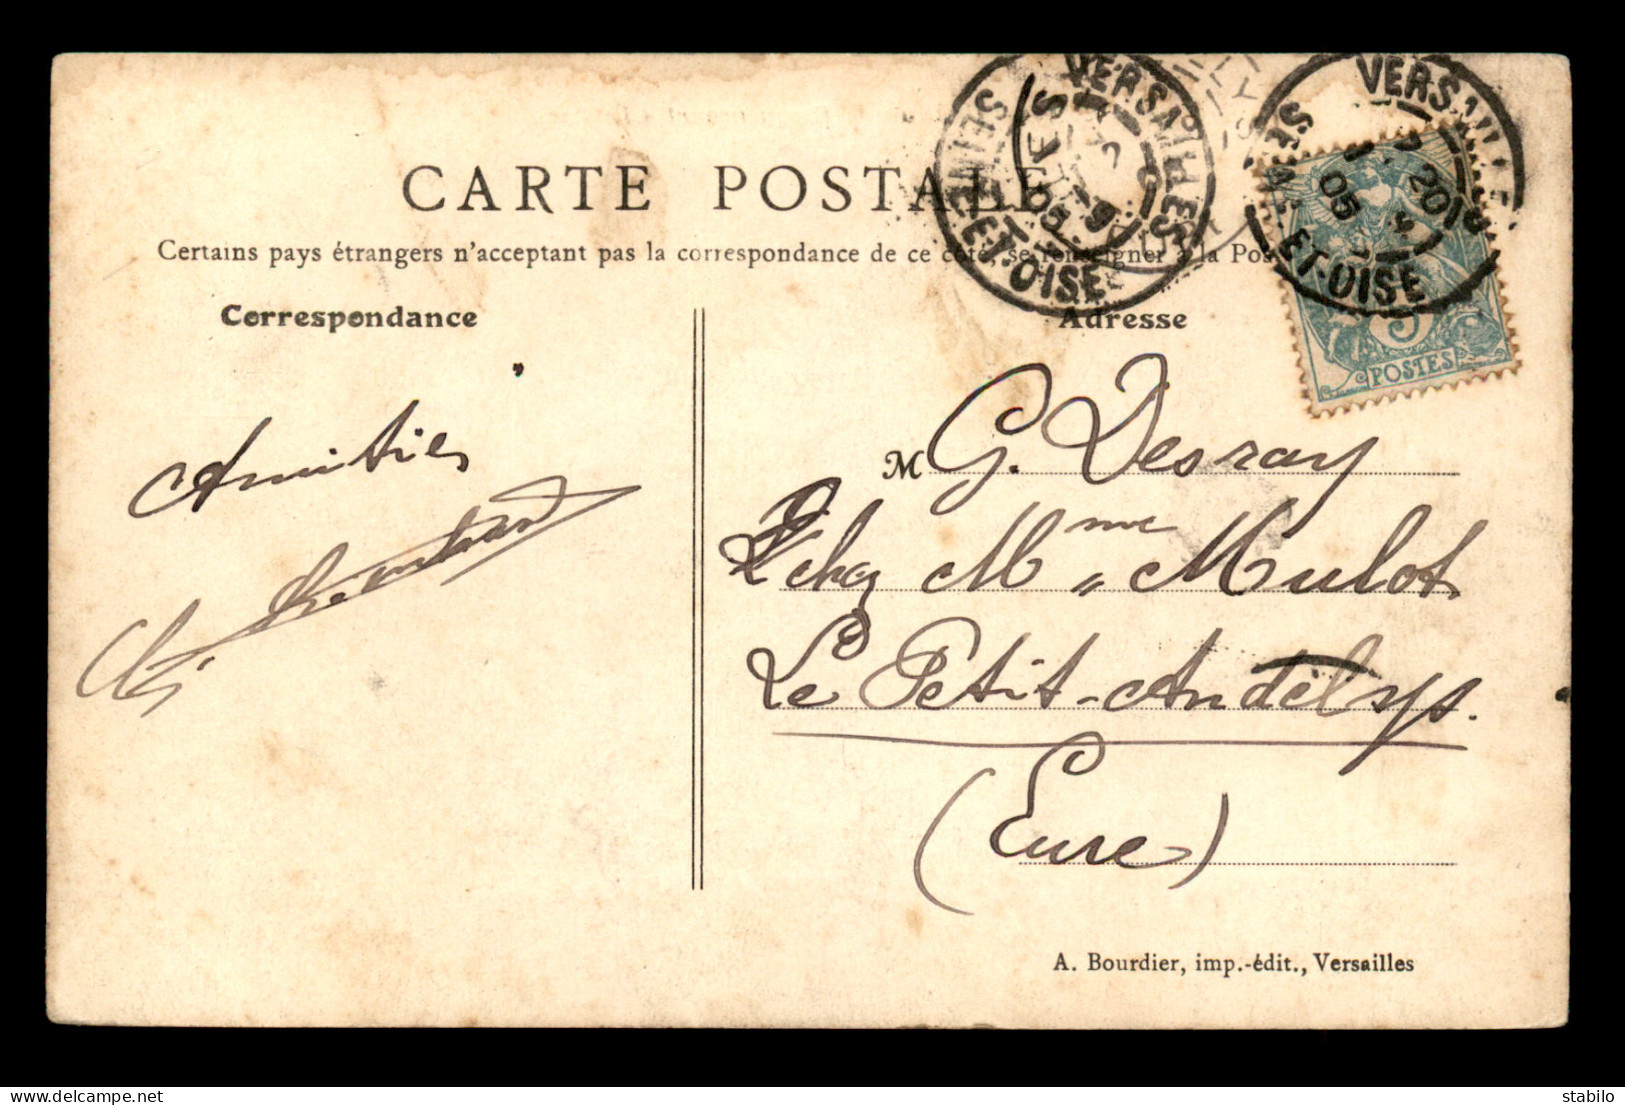 CARTE POSTALE
Certains pays étrangers n'acceptent pas la correspondance de ce côté, se renseigner à la Pos
Correspondance
Adresse
VERSAILLES
SEINE-ET-OISE
VERSAILLES
SEINE-ET-OISE
05
5
POSTES
Amitiés
M G. Desray
chez Mme Mulot
Le Petit-Andelys.
(Eure)
A. Bourdier, imp.-édit., Versailles
delcampe.net
stabilo